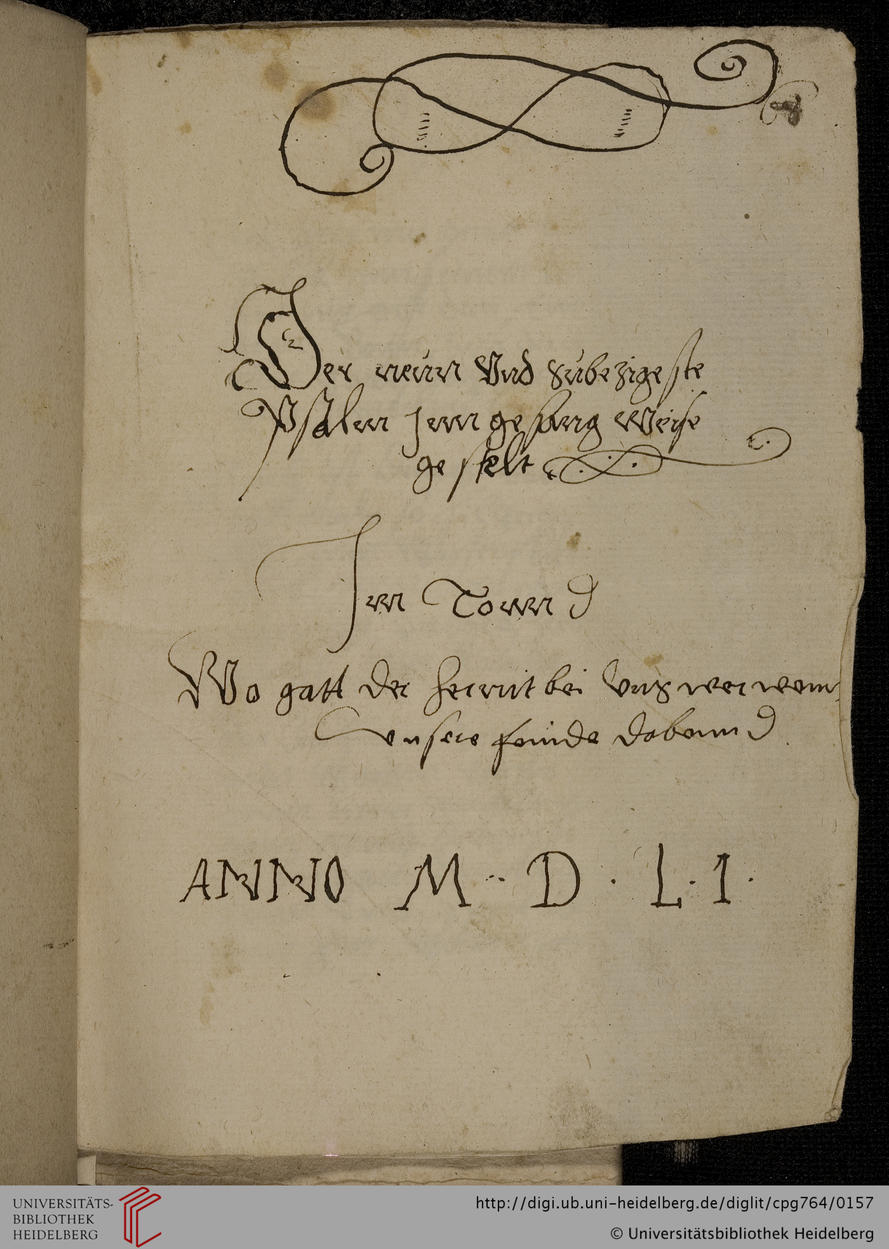 Der neun Vnd Subezigeste
Psalm Jnn gesang weise
gestelt
Jm Tonn
Wo gott der herr nit bei Vns wer wenn
Vnsere feinde
ANNO M · D · L · I ·
UNIVERSITÄTS-
BIBLIOTHEK
HEIDELBERG
http://digi.ub.uni-heidelberg.de/diglit/cpg764/0157
© Universitätsbibliothek Heidelberg